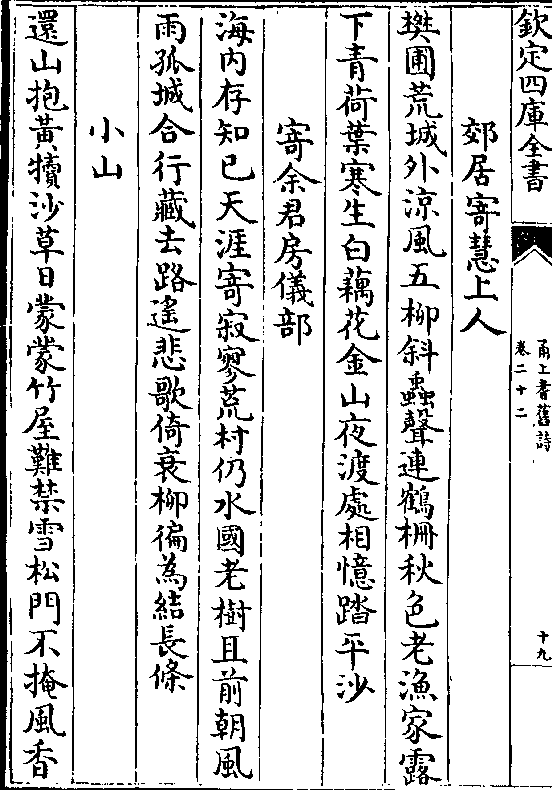 欽定四庫全書
甬上耆舊詩
卷二十二
十九
郊居寄慧上人
樊圃荒城外涼風五柳斜蟲聲連鶴柵秋色老漁家露
下青荷葉寒生白藕花金山夜渡處相憶踏平沙
寄余君房儀部
海内存知已天涯寄寂寥荒村仍水國老樹且前朝風
雨孤城合行藏去路遙悲歌倚衰柳徧為結長條
小山
還山抱黃犢沙草日蒙蒙竹屋難禁雪松門不掩風香